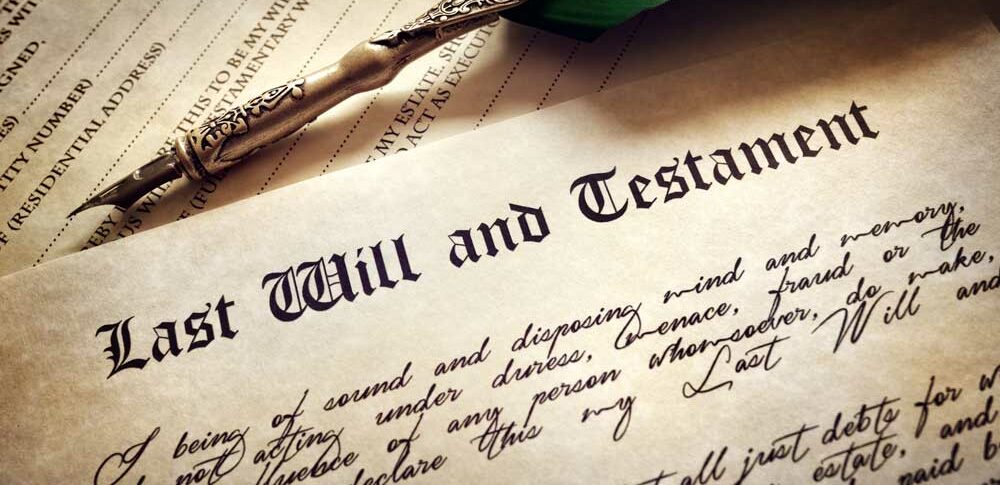 SIGNED.
ES)
TITY NUMBER)
F (RESIDENTIAL ADDRESS)
THIS TO BE MY WIL
TESTAMENTARY W
MY ESTATE, SH
ACT AS EXECUTO
Last Will and Testament
I being of sound and disposing mind and memory,
not acting under duress, menace, fraud or the
fluence of any person whomsoever, do make,
declare this my Last Will and
all just debts for
estate, and
paid b